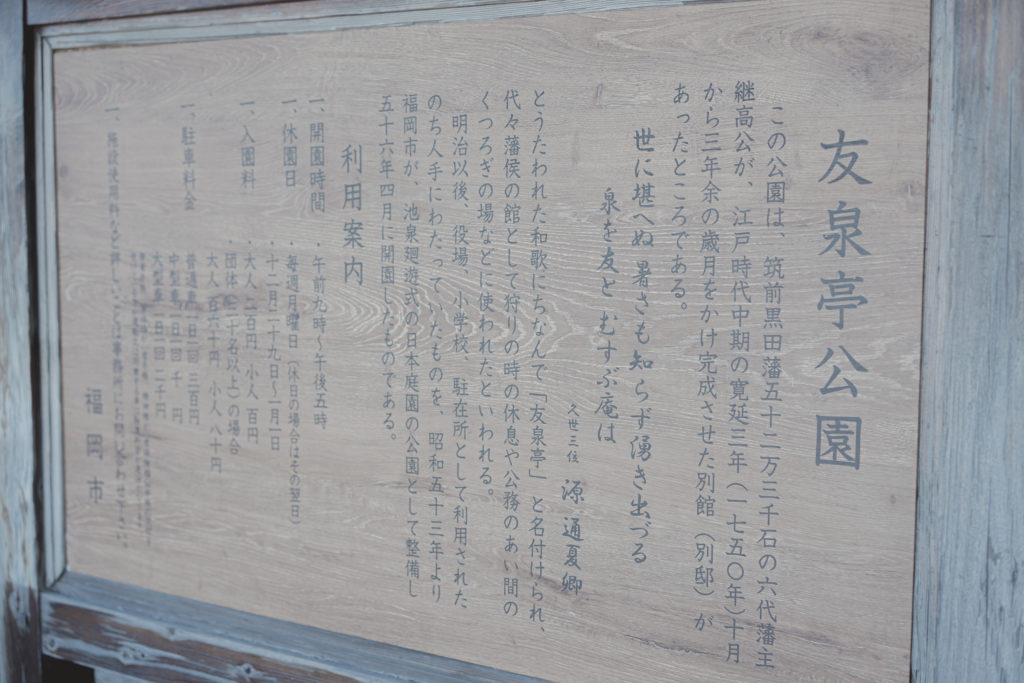 友泉亭公園
この公園は、筑前黒田藩五十二万三千石の六代藩主
継高公が、江戸時代中期の寛延三年（一七五〇年）十月
から三年余の歳月をかけ完成させた別館（別邸）が
あったところである。
世に堪へぬ 暑さも知らず 湧き出づる
泉を友と むすぶ庵は
久世三位 源 通夏卿
とうたわれた和歌にちなんで「友泉亭」と名付けられ、
代々藩侯の館として狩りの時の休息や公務のあい間の
くつろぎの場などに使われたといわれる。
明治以後、役場、小学校、駐在所として利用された
のち人手にわたっていたものを、昭和五十三年より
福岡市が、池泉廻遊式の日本庭園の公園として整備し
五十六年四月に開園したものである。
利用案内
一、開園時間 ・午前九時〜午後五時
一、休園日 ・毎週月曜日（休日の場合はその翌日）
・十二月二十九日〜一月一日
一、入園料 ・大人 二百円 小人 百円
・団体（三十名以上）の場合
大人 百六十円 小人 八十円
一、駐車料金 ・普通車 一日一回 三百円
中型車 一日一回 千円
大型車 一日一回 二千円
一、施設使用料など詳しいことは事務所にお問い合わせ下さい。
福岡市